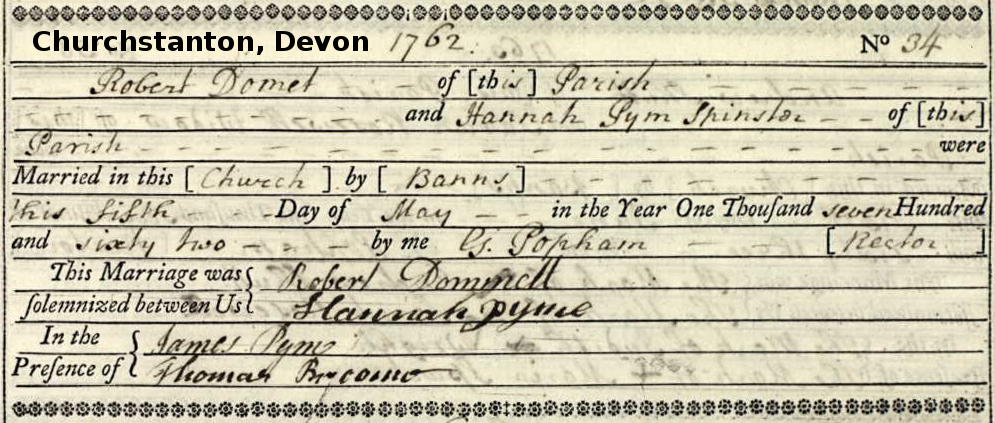 Churchstanton, Devon 1762. No 34
Robert Domet of [this] Parish
and Hannah Pym Spinster of [this]
Parish were
Married in this [Church] by [Banns]
this fifth Day of May in the Year One Thouſand seven Hundred
and sixty two by me G. Popham [Rector]
This Marriage was { Robert Dommett
ſolemnized between Us { Hannah pyme
In the { James Pym
Preſence of { Thomas